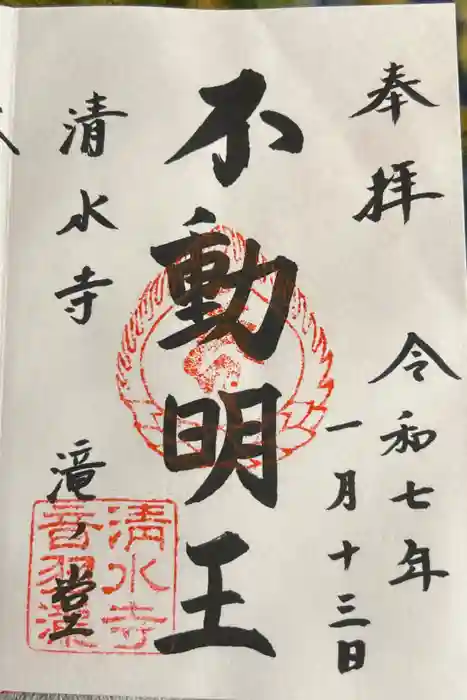 奉拝
令和七年
一月十三日
不動明王
清水寺 滝ノ堂
清水寺
音羽滝